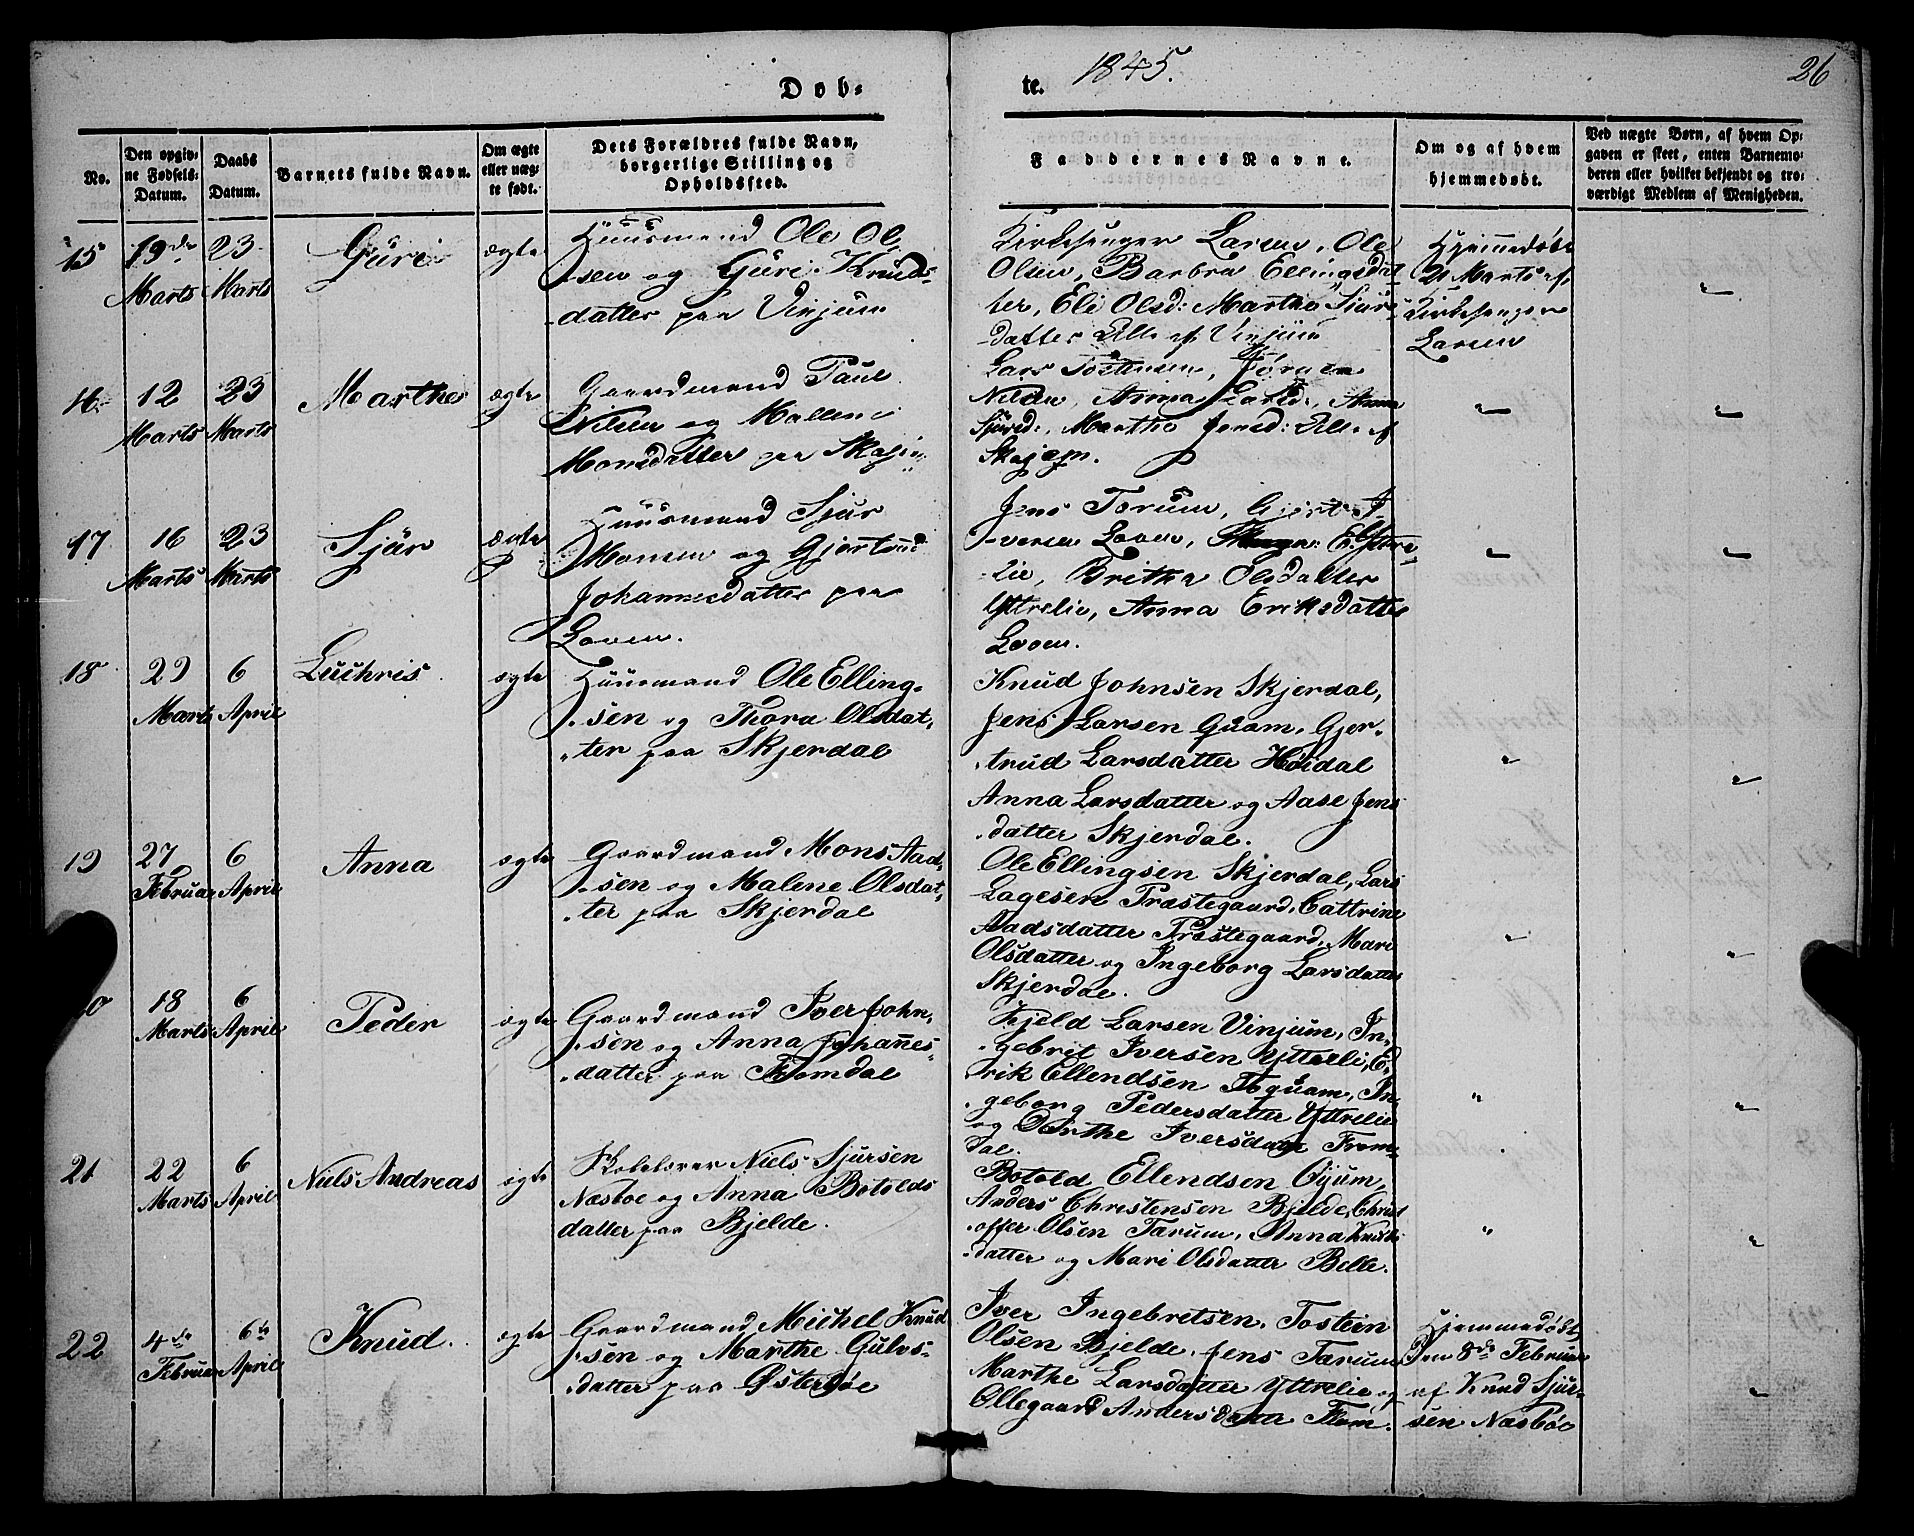 Døb-
te. 1845.
26
No.
Den opgiv-
ne Fødsels-
Datum.
Daabs
Datum.
Barnets fulde Navn.
Om ægte
eller uæg-
te født.
Dets Forældres fulde Navn,
borgerlige Stilling og
Opholdssted.
Faddernes Navne.
Om og af hvem
hjemmedøbt.
Ved uægte Børn, af hvem Op-
gaven er skeet, enten Barnemo-
deren eller hvilket bekjendt og tro-
værdigt Medlem af Menigheden.
15
19de
Marts
23
Marts
Guri
ægte
Huusmand Ole Ol-
sen og Guri Knuds-
datter paa Vinjum
Kirkesanger Larsen, Ole
Olsen, Barbra Ellingsdat-
ter, Eli Olsd: Martha Sjurs-
datter Alle af Vinjum
Hjemmedøbt
21 Marts af
Kirkesanger
Larsen
"
16
12
Marts
23
Marts
Marthe
ægte
Gaardmand Paul
Nilsen og Malleni
Monsdatter paa
Lars Torstensen, Jørgen
Nilsen, Anna Larsd:, Anna
Sjursd:, Martha Jensd: Alle af
Skajem.
"
"
17
16
Marts
23
Marts
Sjur
ægte
Huusmand Sjur
Monsen og Gjertrud
Johannesdatter paa
Loven.
Jens Torum, Gjert I-
versen Loven, E. Yttre-
lie, Britha Olsdatter
Yttrelie, Anna Eriksdatter
Loven.
"
"
18
29
Marts
6
April
Luchris
ægte
Huusmand Ole Elling-
sen og Thora Olsdat-
ter paa Skjerdal
Knud Johnsen Skjerdal,
Jens Larsen Quam, Gjer-
trud Larsdatter Høidal
Anna Larsdatter og Aase Jens
datter Skjerdal.
"
"
19
27
Februar
6
April
Anna
ægte
Gaardmand Mons Aad-
sen og Malene Olsdat-
ter paa Skjerdal
Ole Ellingsen Skjerdal, Lars
Lagesen Præstegaard, Cattrine
Aadsdatter Præstegaard, Mari
Olsdatter og Ingeborg Larsdatter
Skjerdal.
"
"
18
Marts
6
April
Peder
ægte
Gaardmand Iver John-
sen og Anna Johannes-
datter paa Fromdal
Kjeld Larsen Vinjum, In-
gebrit Iversen Yttrelie, E-
rik Ellendsen Toquam, In-
geborg Pedersdatter Yttrelie
og Dorthe Iversdatter From-
dal.
"
"
21
22
Marts
6
April
Niels Andreas
ægte
Skolelærer Niels Sjursen
Næsbøe og Anna Botolds
datter paa Bjelde.
Botold Ellendsen Oyum,
Anders Christensen Bjelde, Christ
offer Olsen Tarum, Anna Knuts
datter og Mari Olsdatter Belle.
"
"
22
4de
Februar
6te
April
Knud.
ægte
Gaardmand Michel Knud
sen og Marthe Gulvs-
datter paa Østerbøe
Iver Ingebretsen, Tostein
Olsen Bjelde, Jens Tarum
Marthe Larsdatter Yttrelie og
Ollegaard Andersdatter Flam.
Hjemmedøbt
Den 8de Februar
af Knud Sjur-
sen Næsbøe
"